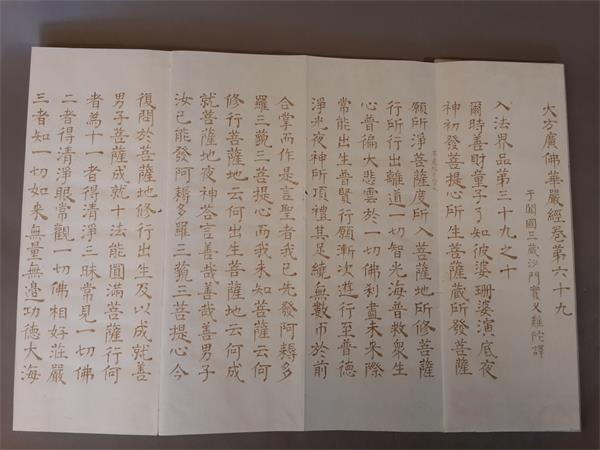 大方廣佛華嚴經卷第六十九
于闐國三藏沙門實叉難陀譯
入法界品第三十九之十
爾時善財童子了知彼婆珊婆演底夜
神初發菩提心所生菩薩藏所發菩薩
願所淨菩薩度所入菩薩地所修菩薩
行所行出離道一切智光海普救眾生
心普徧大悲雲於一切佛剎盡未來際
常能出生普賢行願漸次遊行至普德
淨光夜神所頂禮其足繞無數帀於前
合掌而作是言聖者我已先發阿耨多
羅三藐三菩提心而我未知菩薩云何
修行菩薩地云何出生菩薩地云何成
就菩薩地夜神答言善哉善哉善男子
汝已能發阿耨多羅三藐三菩提心今
復問於菩薩地修行出生及以成就善
男子菩薩成就十法能圓滿菩薩行何
者為十一者得清淨三昧常見一切佛
二者得清淨眼常觀一切佛相好莊嚴
三者知一切如來無量無邊功德大海